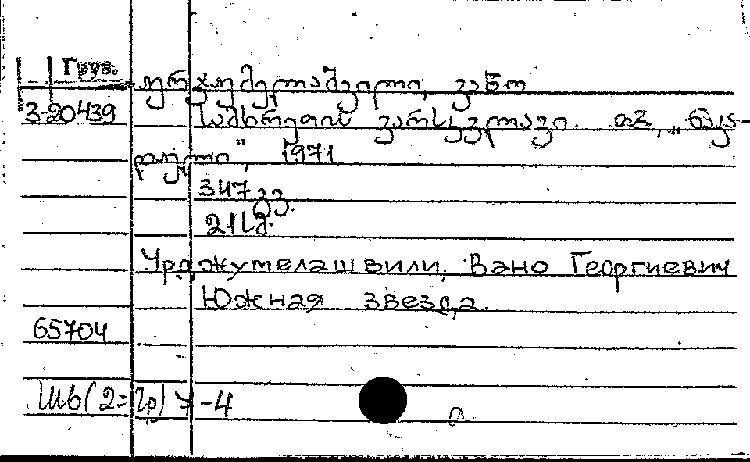 Груз.
ურჯუმელაშვილი, ვანო
3-20439
სამხრეთის ვარსკვლავი. თბ., „ნაკა-
დული“, 1971
347 გვ.
21 სმ.
Урджумелашвили, Вано Георгиевич
Южная звезда.
65704
Шб(2=Гр)7-4